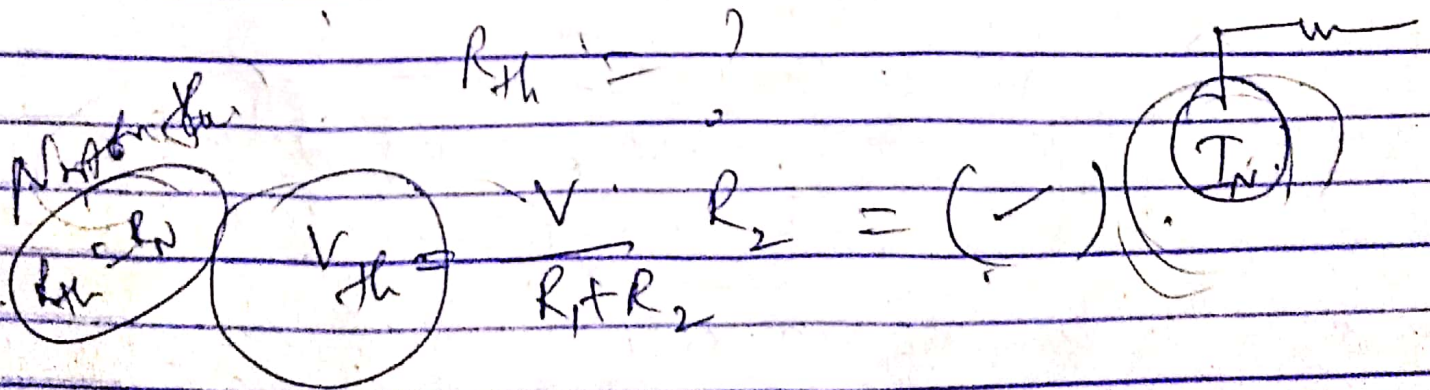 R_th = ?
I_N
R_th = R_N
V_th = V / (R_1 + R_2) R_2 = (✓)